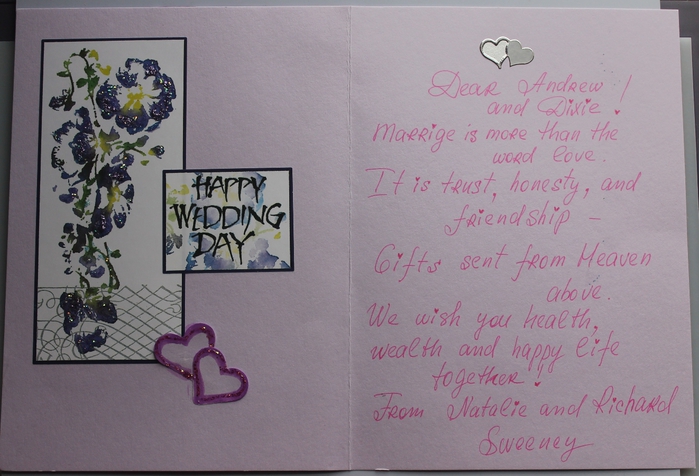 HAPPY
WEDDING
DAY
Dear Andrew
and Dixie!
Marrige is more than the
word love.
It is trust, honesty, and
friendship –
Gifts sent from Heaven
above.
We wish you health,
wealth and happy life
together!
From Natalie and Richard
Sweeney